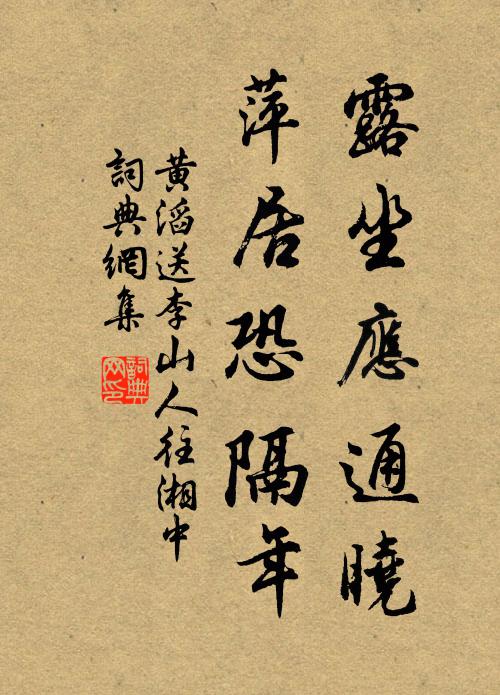 露坐應通曉
萍居恐隔年
黄滔送李山人往湘中
詞典網集
詞典網印